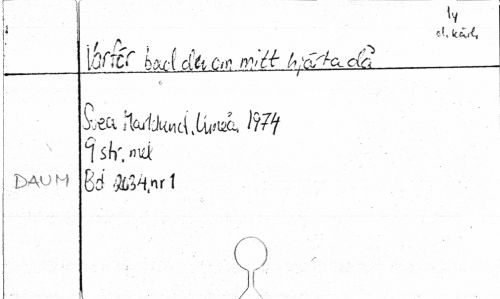 ly
ol. kärl.
Varför bad du om mitt hjärta då
Svea Marklund, Umeå, 1974
9 str, mel
DAUM Bd 2634, nr 1